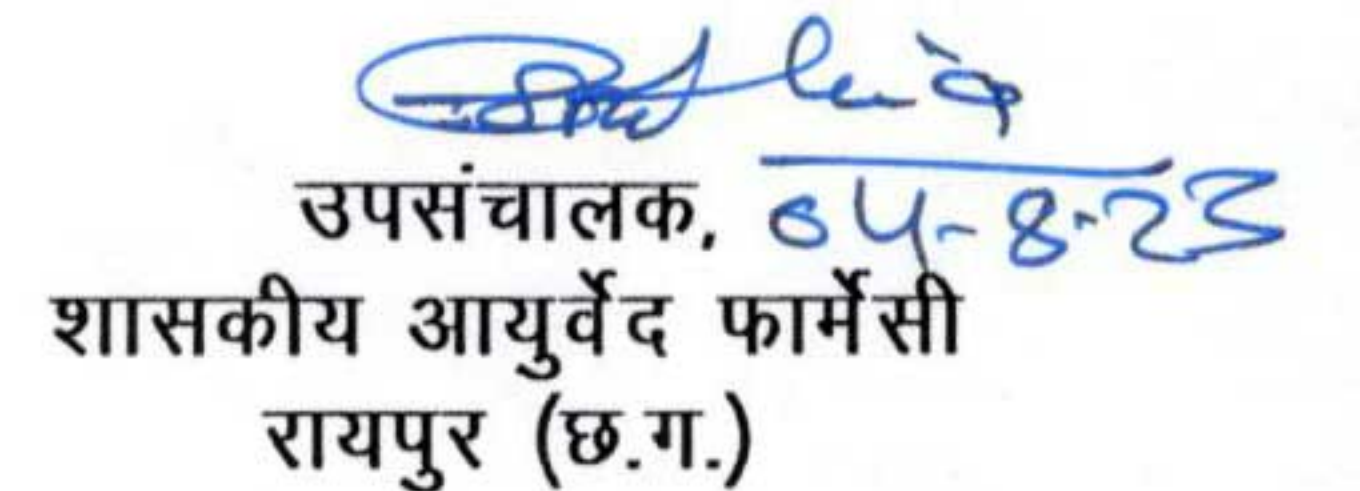 उपसंचालक, 04-8-23
शासकीय आयुर्वेद फार्मेसी
रायपुर (छ.ग.)